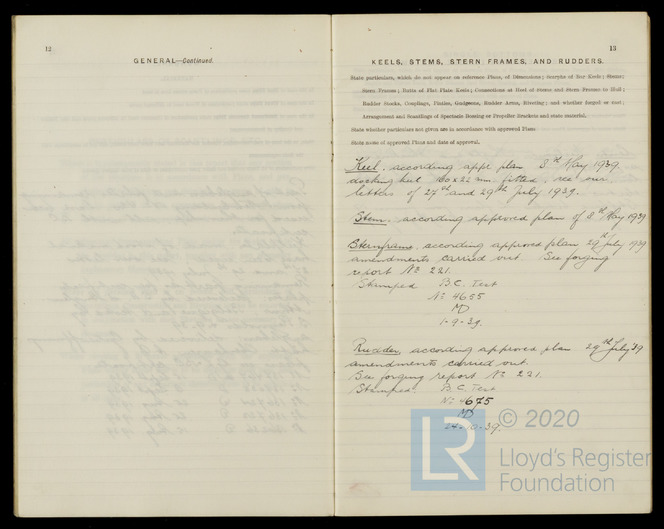 12
GENERAL—Continued.
13
KEELS, STEMS, STERN FRAMES, AND RUDDERS.
State particulars, which do not appear on reference Plans, of Dimensions; Scarphs of Bar Keels; Stems;
Stern Frames; Butts of Flat Plate Keels; Connections at Heel of Stems and Stern Frames to Hull;
Rudder Stocks, Couplings, Pintles, Gudgeons, Rudder Arms, Riveting; and whether forged or cast;
Arrangement and Scantlings of Spectacle Bossing or Propeller Brackets and state material.
State whether particulars not given are in accordance with approved Plans
State name of approved Plans and date of approval.
Keel, according appr plan 8th May 1939.
docking keel 160 x 22 mm fitted, see our
letters of 27th and 29th July 1939.
Stem, according approved plan of 8th May 1939
Sternframe, according approved plan 29th July 1939
amendments carried out. See forging
report No 221.
Stamped B.C. Test
No 4655
MD
1-9-39.
Rudder, according approved plan 29th July 39
amendments carried out.
See forging report No 221.
Stamped. B.C. Test
No 4675
MD
24-10-39.
LR
© 2020
Lloyd's Register
Foundation